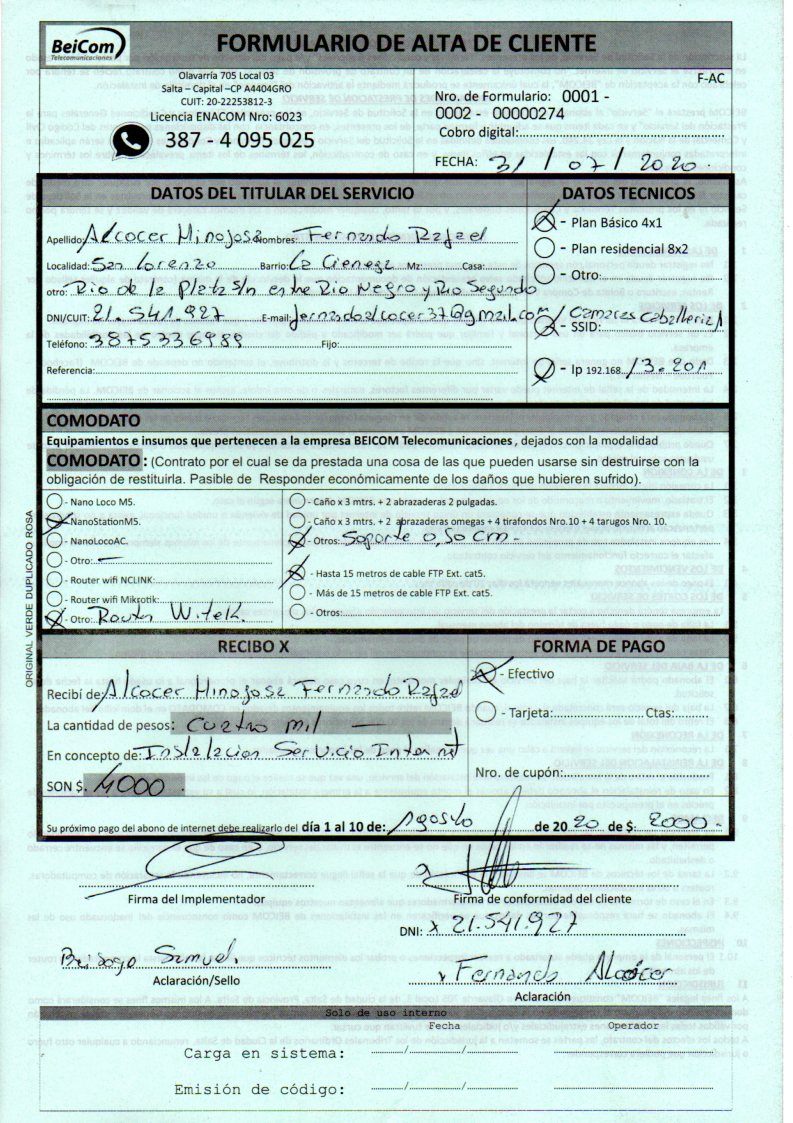 BeiCom
Telecomunicaciones
FORMULARIO DE ALTA DE CLIENTE
Olavarría 705 Local 03
Salta – Capital –CP A4404GRO
CUIT: 20-22253812-3
Licencia ENACOM Nro: 6023
387 - 4 095 025
F-AC
Nro. de Formulario: 0001 -
0002 - 00000274
Cobro digital:
FECHA: 31 / 07 / 2020.
DATOS DEL TITULAR DEL SERVICIO
Apellido: Alcocer Hinojosa Nombres: Fernando Rafael
Localidad: San Lorenzo Barrio: La Cienega Mz: Casa:
otro: Rio de la Plata S/n entre Rio Negro y Rio Segundo
DNI/CUIT: 21.541.927 E-mail: fernandoalcocer37@gmail.com
Teléfono: 3875336989 Fijo:
Referencia:
DATOS TECNICOS
- Plan Básico 4x1
- Plan residencial 8x2
- Otro:
- SSID: Camaras Caballeriza
- Ip 192.168. 13.201
COMODATO
Equipamientos e insumos que pertenecen a la empresa BEICOM Telecomunicaciones, dejados con la modalidad
COMODATO: (Contrato por el cual se da prestada una cosa de las que pueden usarse sin destruirse con la
obligación de restituirla. Pasible de Responder económicamente de los daños que hubieren sufrido).
- Nano Loco M5.
- NanoStationM5.
- NanoLocoAC.
- Otro: -
- Router wifi NCLINK:
- Router wifi Mikrotik:
- Otro: Router Witek.
- Caño x 3 mtrs. + 2 abrazaderas 2 pulgadas.
- Caño x 3 mtrs. + 2 abrazaderas omegas + 4 tirafondos Nro.10 + 4 tarugos Nro. 10.
- Otros: Soporte 0,50 cm-
- Hasta 15 metros de cable FTP Ext. cat5.
- Más de 15 metros de cable FTP Ext. cat5.
- Otros:
ORIGINAL VERDE DUPLICADO ROSA
RECIBO X
Recibí de: Alcocer Hinojosa Fernando Rafael
La cantidad de pesos: cuatro mil —
En concepto de: Instalacion Servicio Internet
SON $. 4000.
FORMA DE PAGO
- Efectivo
- Tarjeta: Ctas:
Nro. de cupón:
Su próximo pago del abono de internet debe realizarlo del día 1 al 10 de: Agosto de 20 20 de $: 2000-
Firma del Implementador
Firma de conformidad del cliente
DNI: x 21.541.927
Samuel.
Aclaración/Sello
x Fernando Alcocer
Aclaración
Solo de uso interno
Fecha Operador
Carga en sistema: / /
Emisión de código: / /